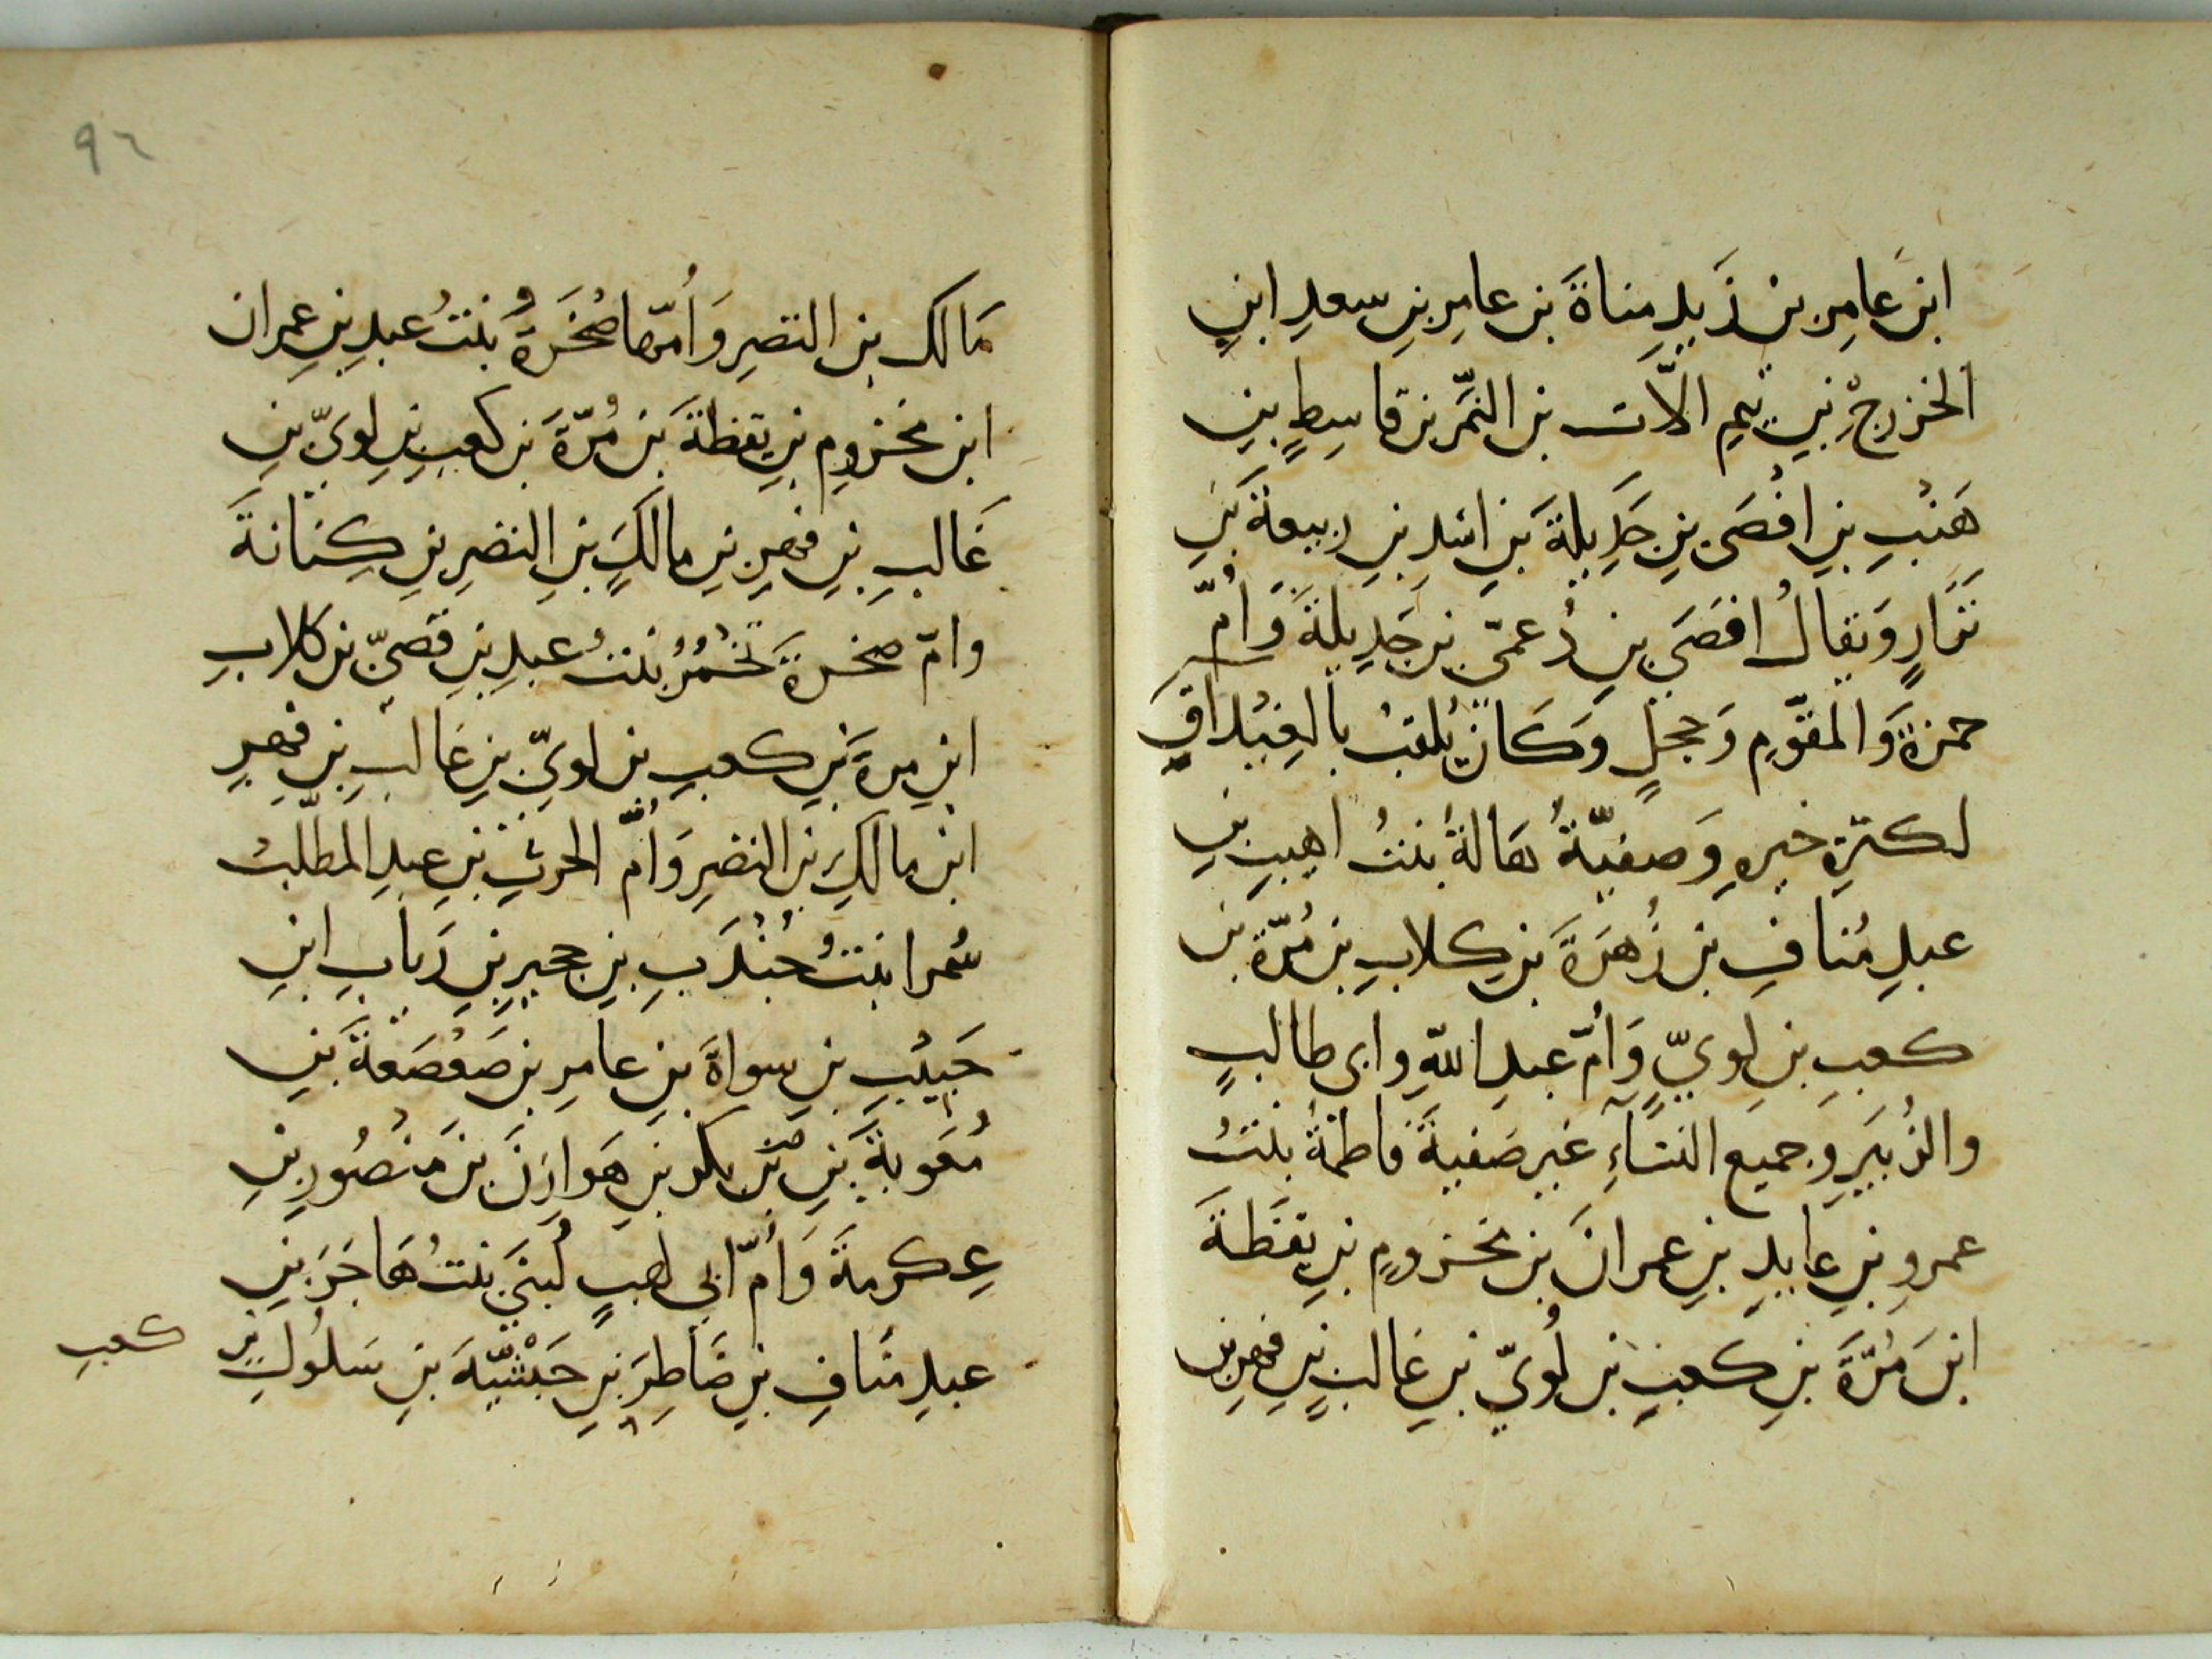 ابن عامر بن زيد مناة بن عامر بن سعد ابن
الخزرج بن تيم الات بن النمر بن قاسط بن
هنب بن افصى بن جديلة بن اسد بن ربيعة بن
نزار ويقال افصى بن دعمى بن جديلة وأم
حمزة والمقوم وحجل وكان يلقب بالغيداق
لكثرة خيره وصفية هالة بنت اهيب بن
عبد مناف بن زهرة بن كلاب بن مرة بن
كعب بن لوي وأم عبد الله وابى طالب
والزبير وجميع النسآء غير صفية فاطمة بنت
عمرو بن عايد بن عمران بن مخزوم بن يقظة
ابن مرة بن كعب بن لوي بن غالب بن فهر بن
٩٢
مالك بن النضر وأمها صخرة بنت عبد بن عمران
ابن مخزوم بن يقظة بن مرة بن كعب بن لوي بن
غالب بن فهر بن مالك بن النضر بن كنانة
وام صخرة تخمر بنت عبد بن قصي بن كلاب
ابن مرة بن كعب بن لوي بن غالب بن فهر
ابن مالك بن النضر وأم الحرث بن عبد المطلب
سمرا بنت جندب بن حجير بن رباب ابن
حبيب بن سواة بن عامر بن صعصعة بن
معوية بن بكر بن هوازن بن منصور بن
عكرمة وأم ابي لهب لبنى بنت هاجر بن
عبد مناف بن ضاطر بن حبشية بن سلول بن
كعب